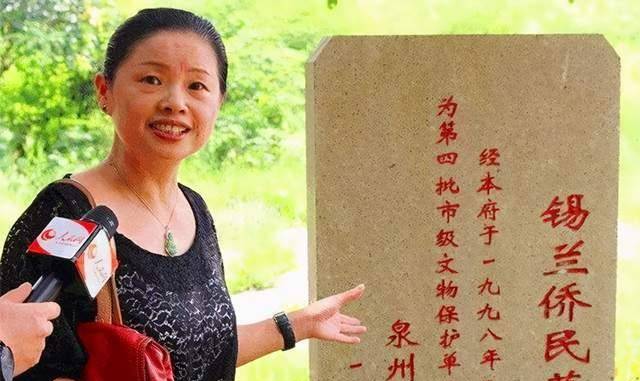 锡兰侨民
经本府于一九九八年
为第四批市级文物保护单
泉州
一
人民网